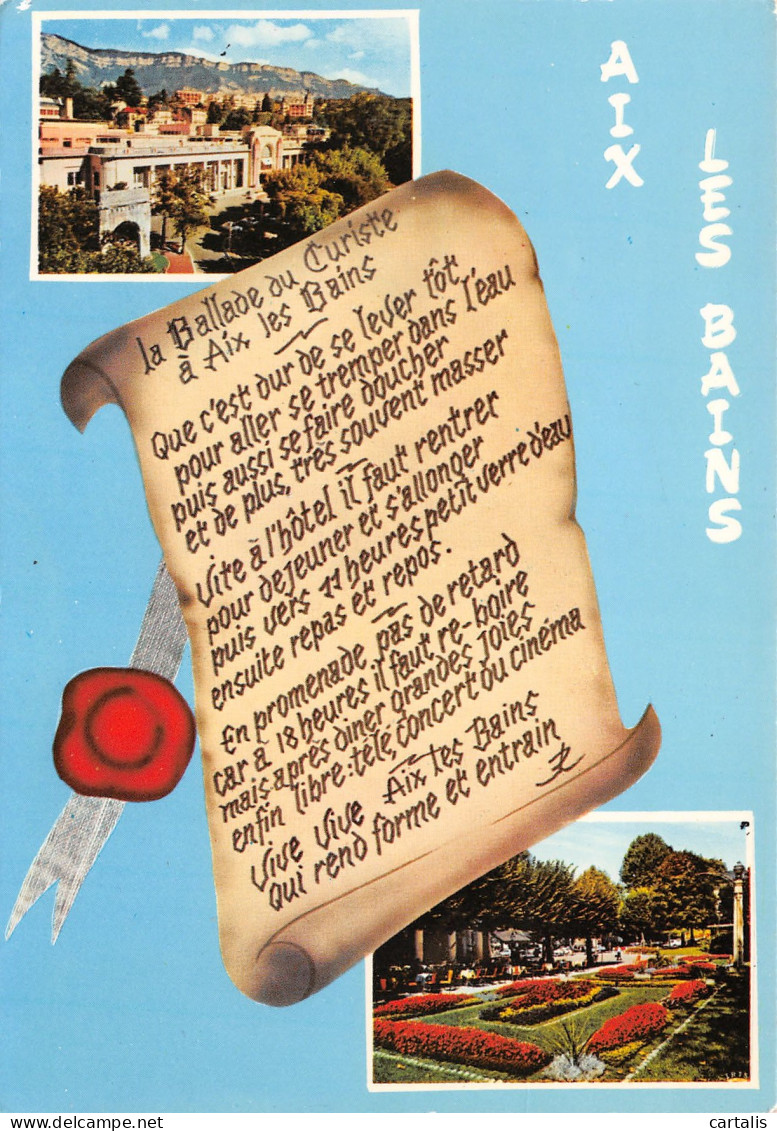 AIX
LES
BAINS
la Ballade du Curiste
à Aix les Bains
Que c'est dur de se lever tôt
pour aller se tremper dans l'eau
puis aussi se faire doucher
et de plus, très souvent masser
Vite à l'hôtel il faut rentrer
pour dejeuner et s'allonger
puis vers 11 heures petit verre d'eau
ensuite repas et repos.
En promenade pas de retard
car a 18 heures il faut re-boire
mais après diner grandes joies
enfin libre: télé, concert ou cinéma
Vive Vive Aix les Bains
qui rend forme et entrain
IRIS
www.cartalis.com
cartalis